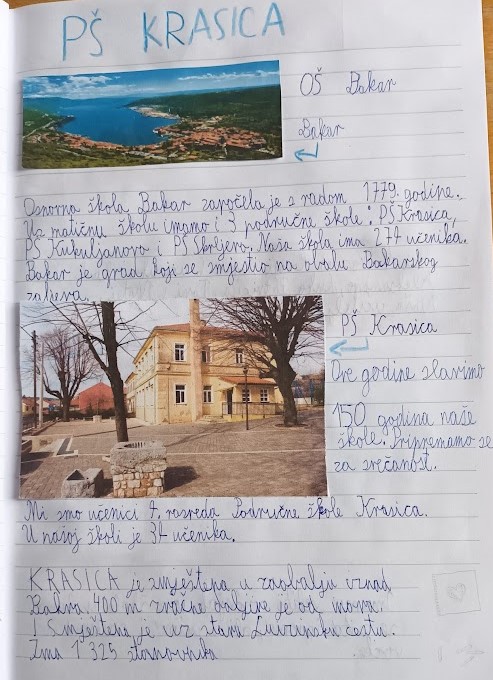 PŠ KRASICA
OŠ Bakar
Bakar
Osnovna škola Bakar započela je s radom 1779. godine.
Uz matičnu školu imamo i 3 područne škole: PŠ Krasica,
PŠ Kukuljanovo i PŠ Škrljevo. Naša škola ima 274 učenika.
Bakar je grad koji se smjestio na obalu Bakarskog
zaljeva.
PŠ Krasica
Ove godine slavimo
150 godina naše
škole. Pripremamo se
za svečanost.
Mi smo učenici 4. razreda Područne škole Krasica.
U našoj školi je 34 učenika.
KRASICA je smještena u zaobalju iznad
Bakra, 400 m zračne daljine je od mora.
Smještena je uz staru Lujzinsku cestu.
Ima 1 325 stanovnika